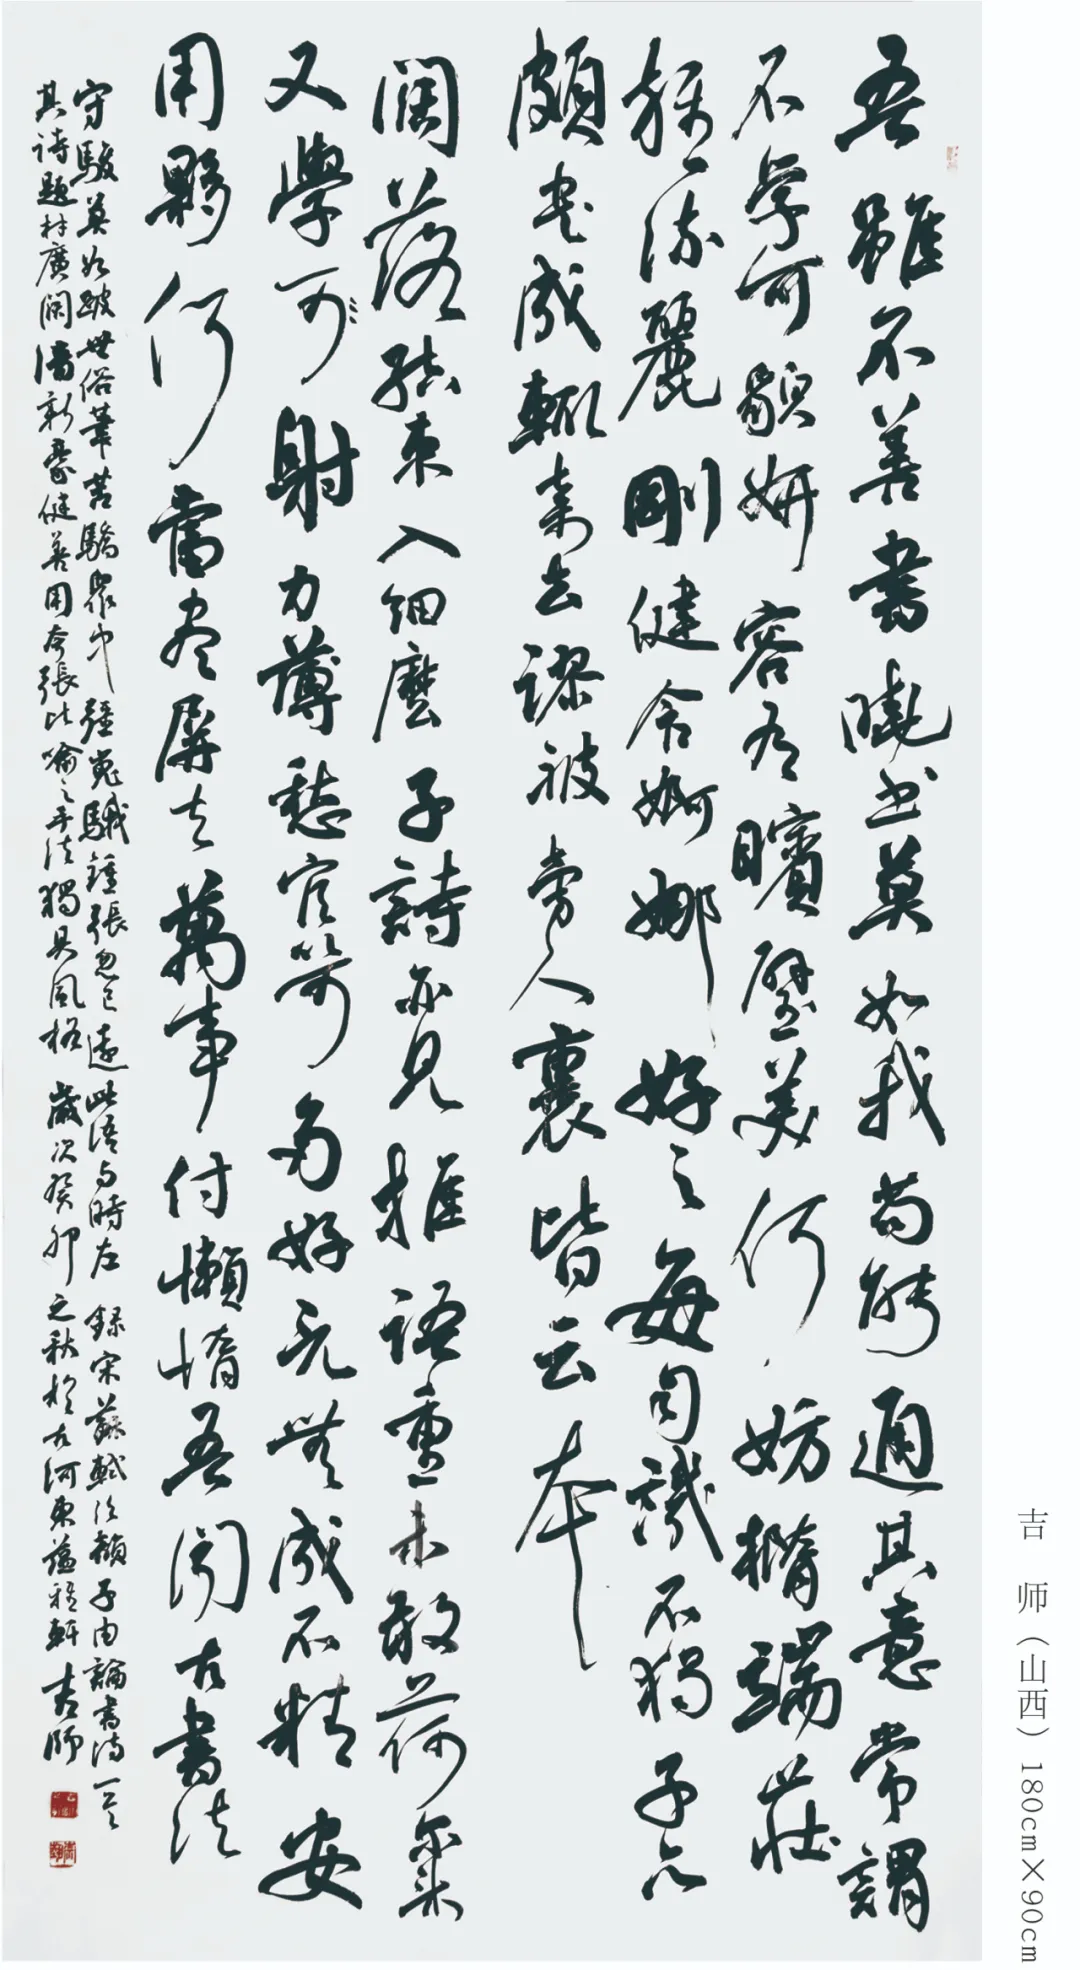 吾雖不善書曉书莫如我苟能通其意常謂
不学可貌妍容有矉璧美何妨橢端莊
雜流麗剛健含婀娜好之每自譏不獨子亦
頗书成輒弃去謬被旁人裹皆云本
阔落結束入細麼子詩亦見推語重未敢荷爾来
又學可射力薄愁官笴多好竟無成不精安
用夥何當尽屏去萬事付懶惰吾闻古書法
守駿莫如跛世俗筆苦驕衆中強嵬騀鍾張忽已遠此語与時左 録宋蘇軾次韻子由論書诗一首
其诗題材廣阔清新豪健善用夸張比喻之手法獨具風格 歲次癸卯之秋於古河東蕴雅軒吉师
吉 师（山西）180cm×90cm